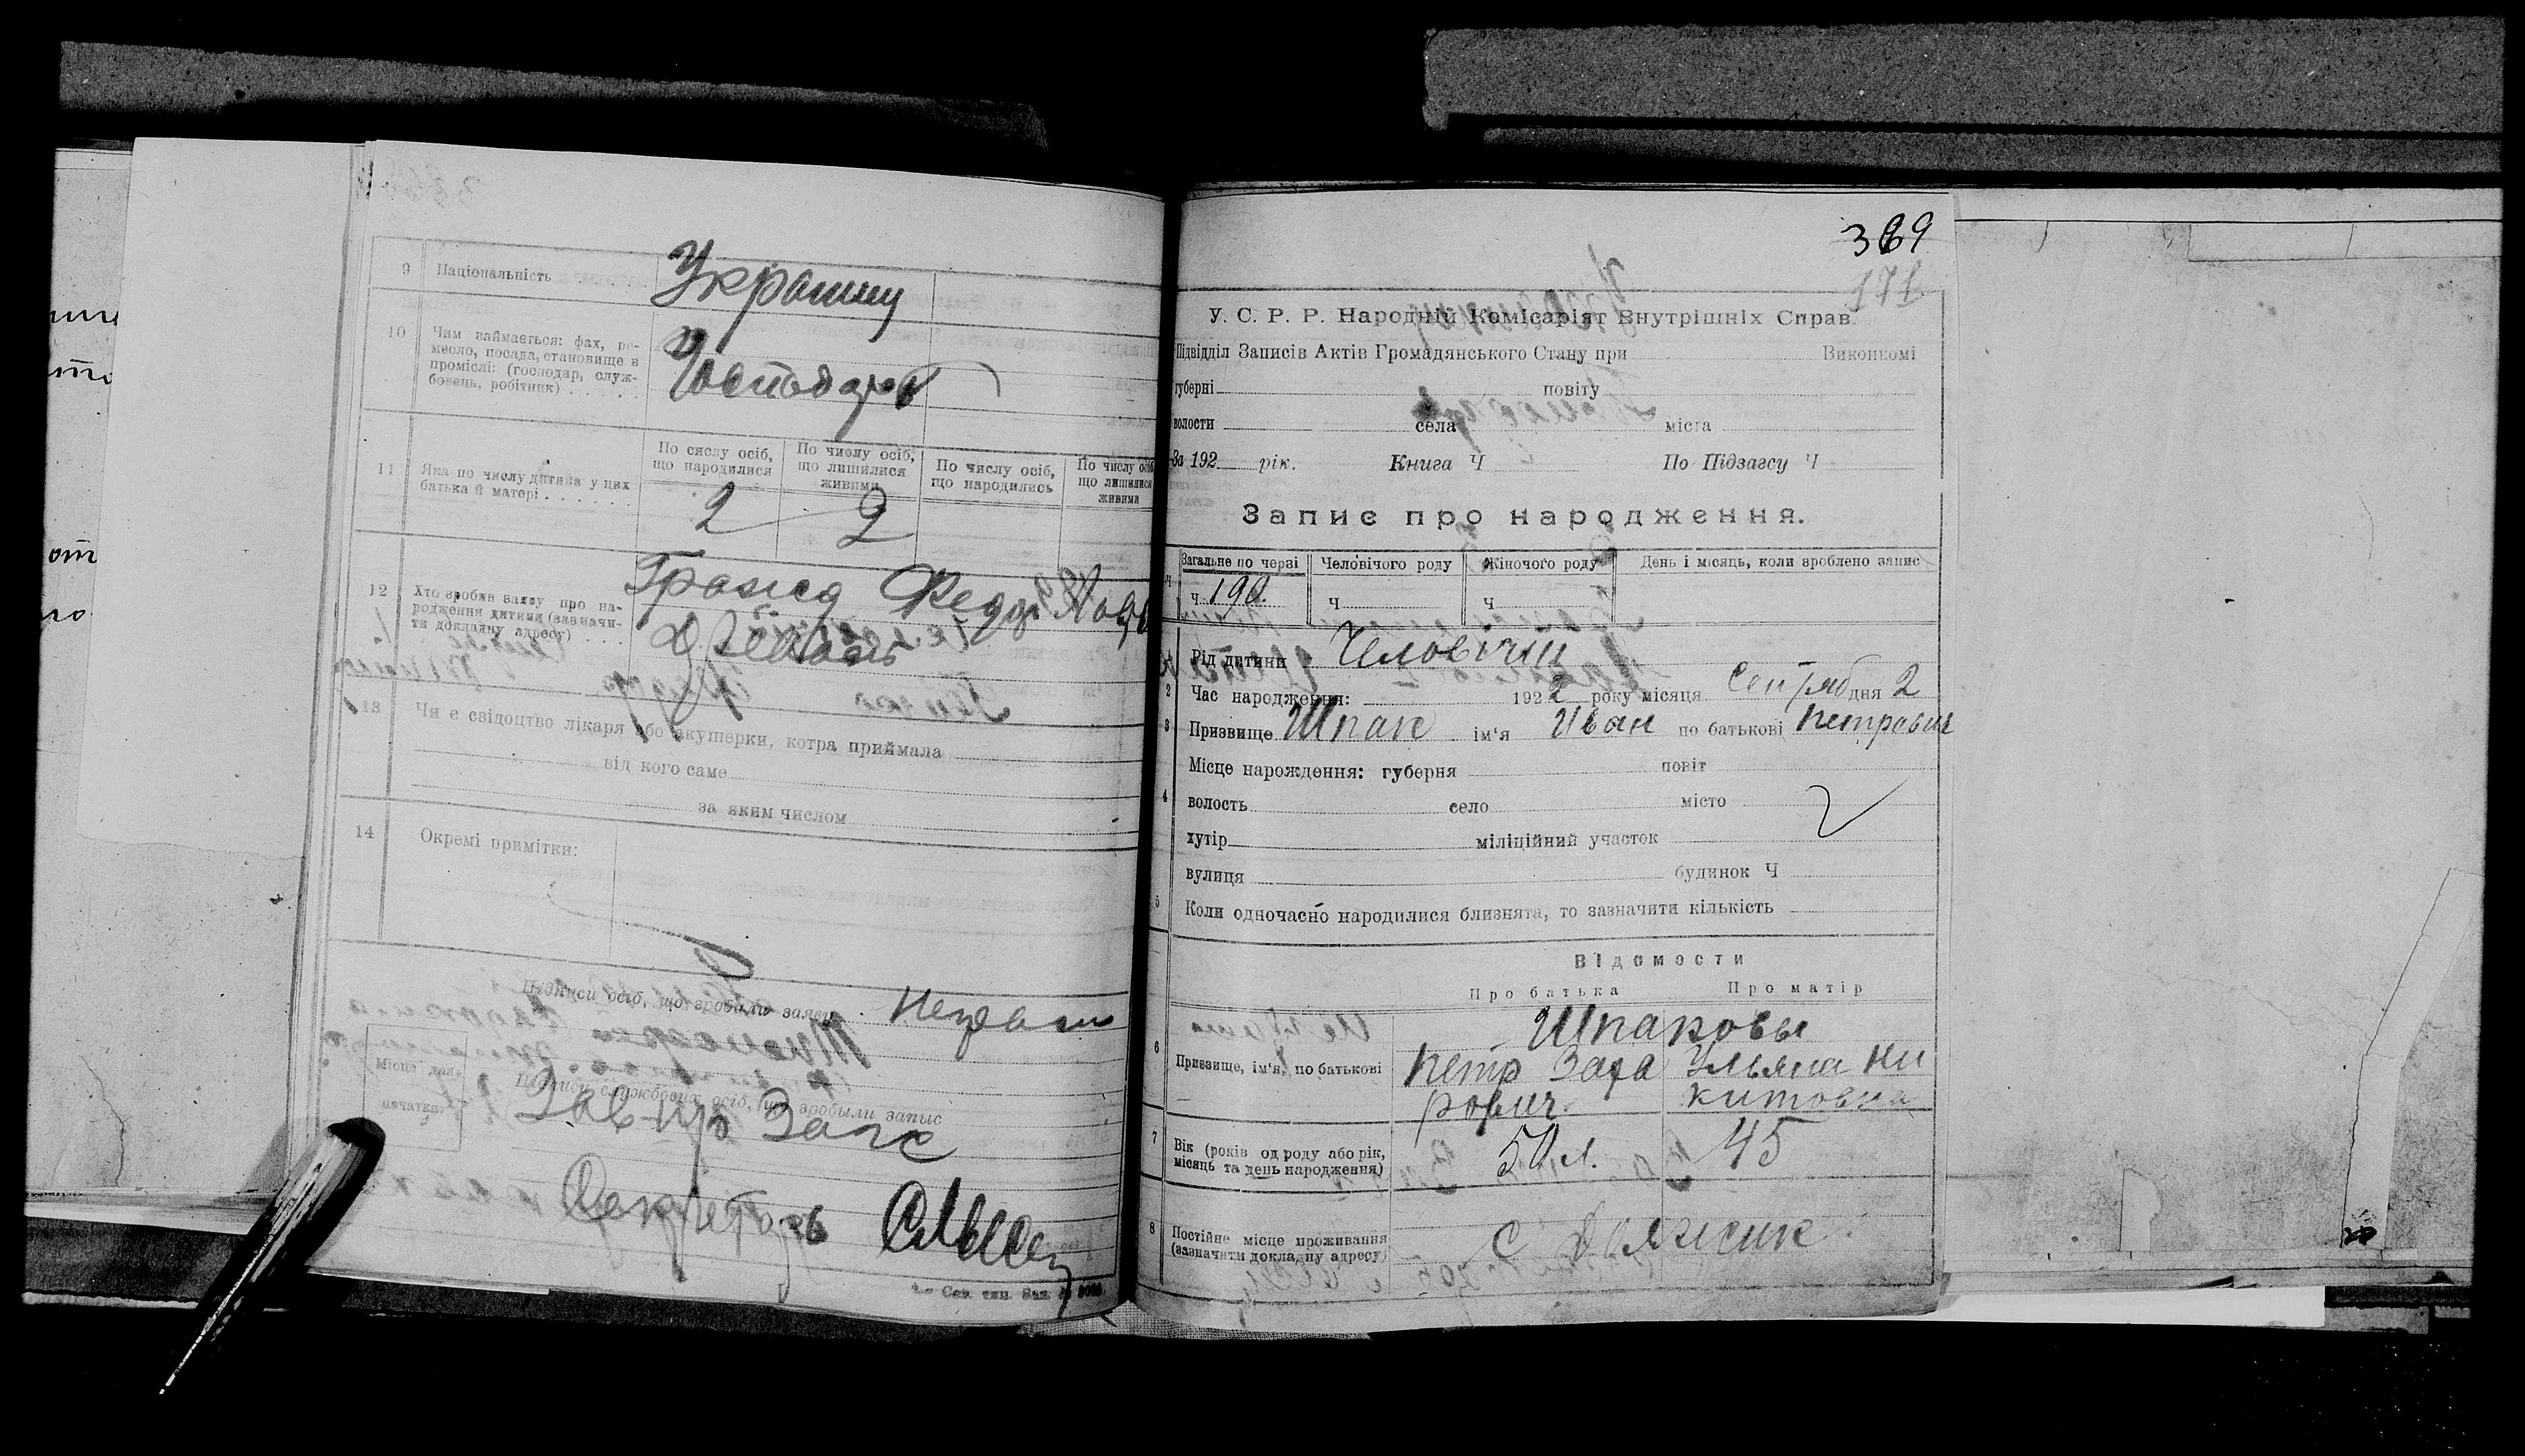 9 Національність Украинц
10 Чим займається: фах, ре-
месло, посада, становище в
промислі: (господар, служ-
бовець, робітник) Господарь
11 Яка по числу дитина у цих
батька й матері
По сислу осіб,
що народилися
2
По числу осіб,
що лишилися
живими
2
По числу осіб,
що народились
По числу осіб
що лишилися
живими
12 Хто зробив заяву про на-
родження дитини (зазначи-
ти докладну адресу)
Гражд Федор
13 Чи є свідоцтво лікаря або акушерки, котра приймала
від кого саме
за яким числом
14 Окремі примітки:
Підписи осіб, що зробили заяву
Місце для
печатки.
Підписи службових осіб, що зробыли запыс
Зав-пр Загс
Секретарь
369
171
У. С. Р. Р. Народній Комісаріят Внутрішніх Справ.
Підвідділ Записів Актів Громадянського Стану при Виконкомі
губерні повіту
волости села міста
За 192 рік. Книга Ч По Підзагсу Ч
Запис про народження.
Загальне по черзі Человічого роду Жіночого роду День і місяць, коли зроблено запис
Ч 190. Ч Ч
1 Рід дитини Человічій
2 Час народження: 1922 року місяця Сентряб дня 2
3 Призвище Шпак ім'я Иван по батькові Петрович
4 Місце народження: губерня повіт
волость село місто
хутір міліційний участок
вулиця будинок Ч
5 Коли одночасно народилися близнята, то зазначити кількість
Відомости
Про батька Про матір
Шпаковы
6 Призвище, ім'я, по батькові Петр Заха Ульяна Ни
рович китовна
7 Вік (років од роду або рік,
місяць та день народження) 50 л. 45
8 Постійне місце проживання
(зазначити докладну адресу)